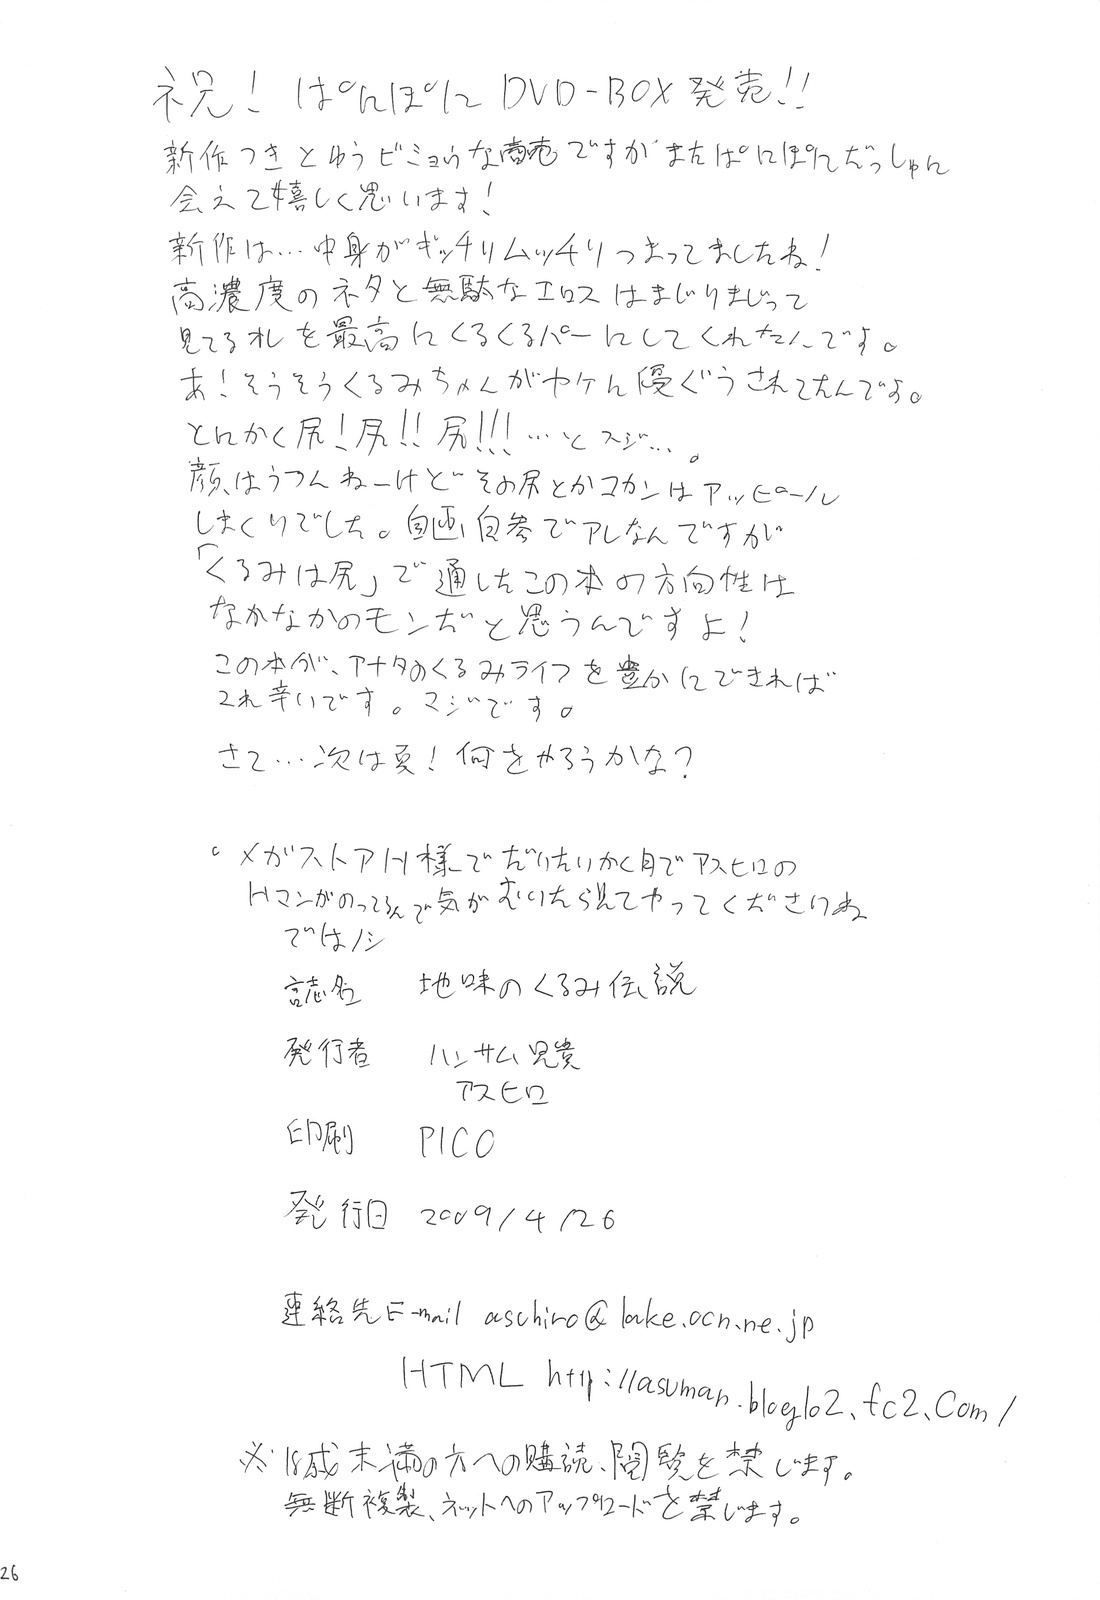 祝! ぱにぽに DVD-BOX 発売!!
新作つきとゆうビミョウな商売ですがまたぱにぽにだっしゅん
会えて嬉しく思います!
新作は…中身がギッチリムッチリつまってましたね!
高濃度のネタと無駄なエロスはまじりまじって
見てるオレを最高にくるくるパーにしてくれたんです。
あ!そうそうくるみちゃんがヤケに優ぐうされてたんです。
とにかく尻!尻!!尻!!!…とスジ…。
顔はうつんねーけどその尻とかコカンはアッピール
しまくりでした。自画自参でアレなんですが
「くるみは尻」で通したこの本の方向性は
なかなかのモンだと思うんですよ!
この本が、アナタのくるみライフを豊かにできれば
これ幸いです。マジです。
さて…次は夏!何をやろうかな?
。メガストアH様でだいたいかく月でアスヒロの
Hマンがのってるんで気がむいたら見てやってくださいね
ではノシ
誌名 地味のくるみ伝説
発行者 ハンサム兄貴
アスヒロ
印刷 PICO
発行日 2009/4/26
連絡先E-mail aschiro@lake.ocn.ne.jp
HTML http://asuman.blog102.fc2.com/
※18歳未満の方への購読、閲覧を禁じます。
無断複製、ネットへのアップロードを禁じます。
26